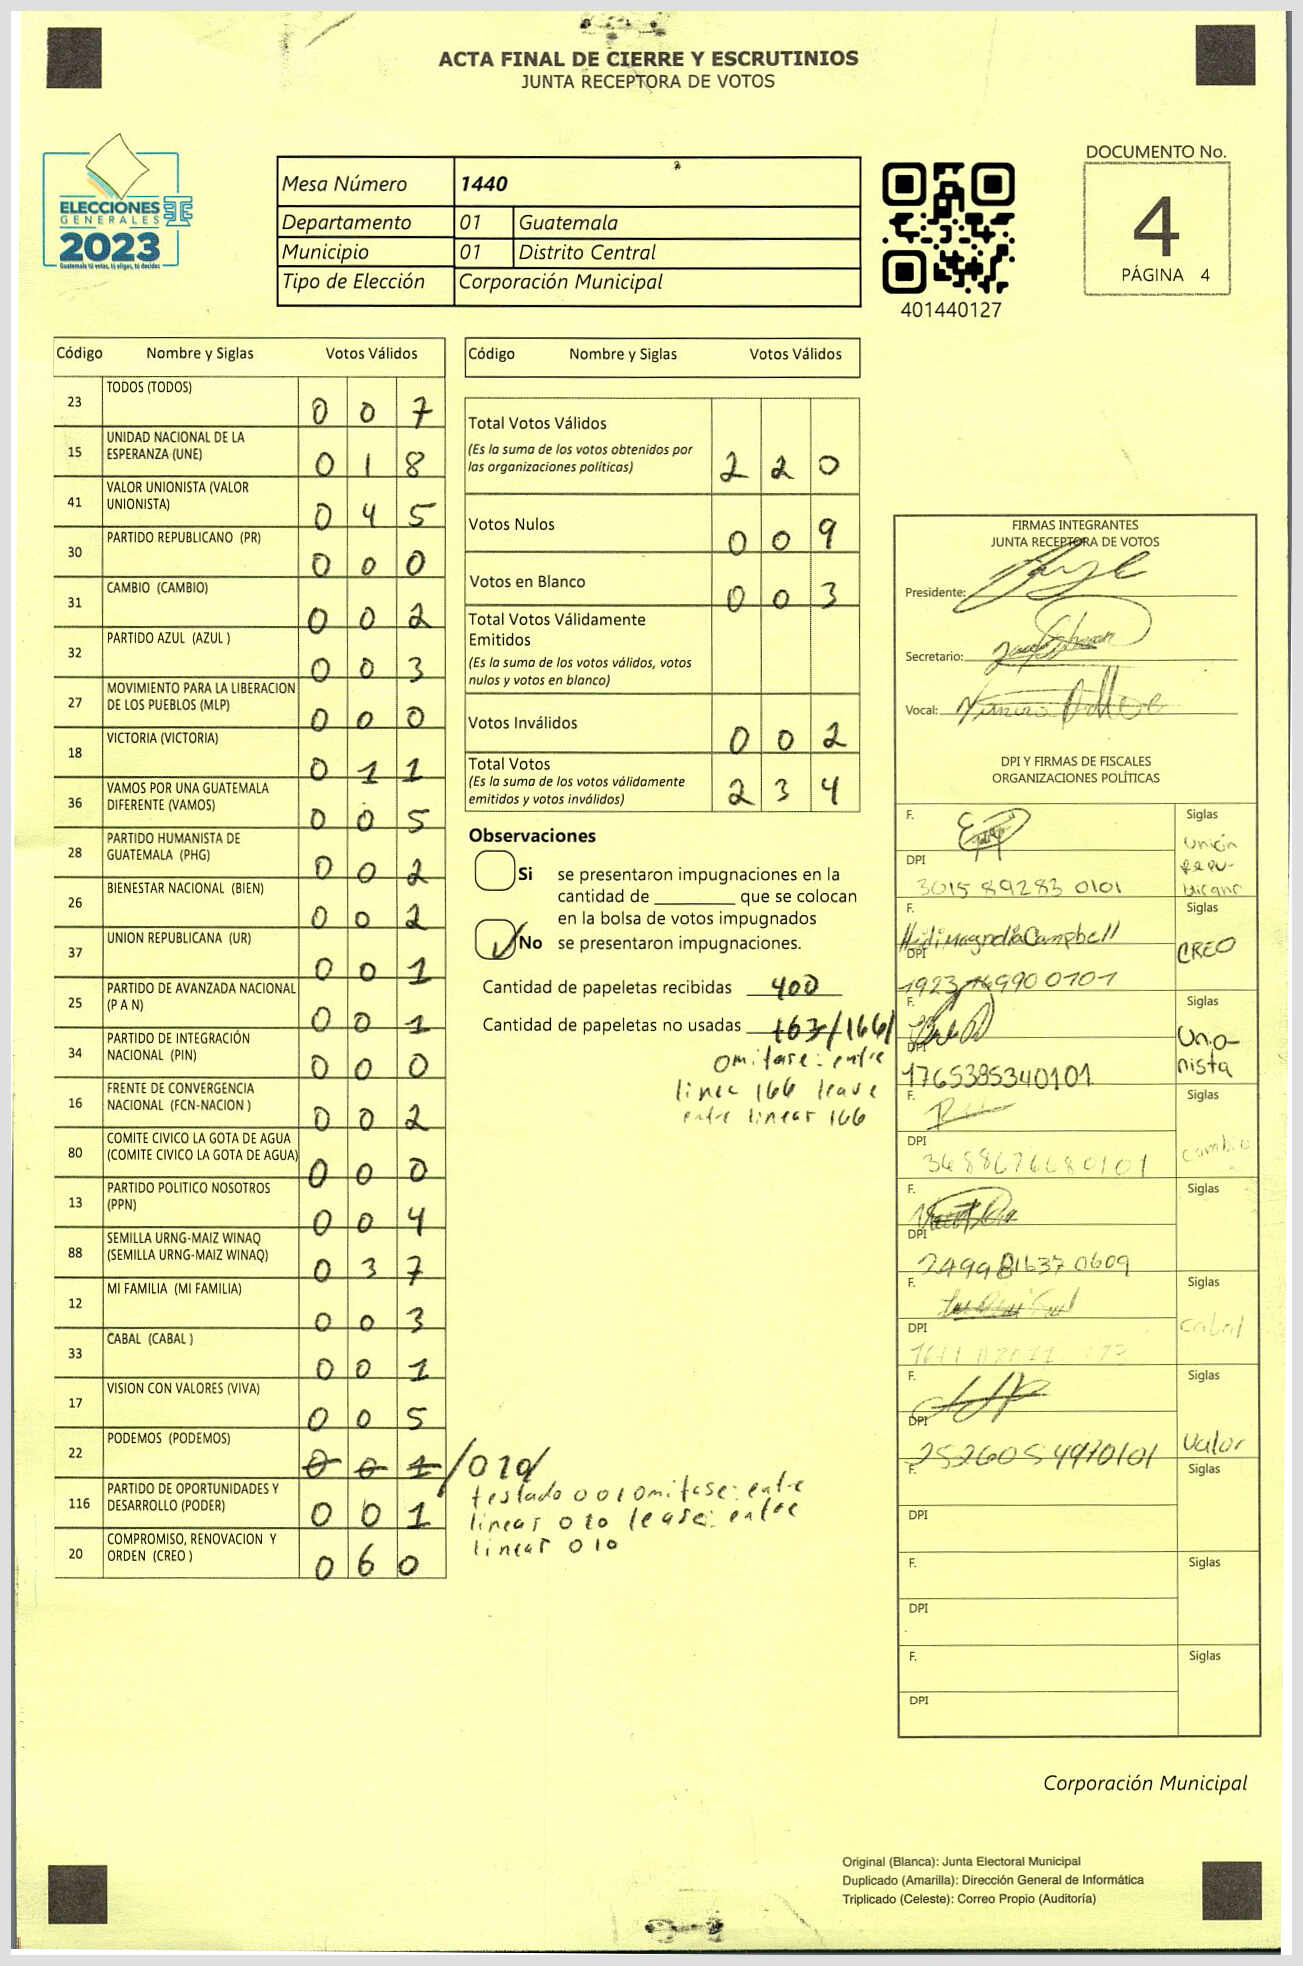 ACTA FINAL DE CIERRE Y ESCRUTINIOS
JUNTA RECEPTORA DE VOTOS
ELECCIONES
GENERALES
2023
Guatemala tú votas, tú eliges, tú decides
TSE
Mesa Número 1440
Departamento 01 Guatemala
Municipio 01 Distrito Central
Tipo de Elección Corporación Municipal
401440127
DOCUMENTO No.
4
PÁGINA 4
Código Nombre y Siglas Votos Válidos
23 TODOS (TODOS) 0 0 7
15 UNIDAD NACIONAL DE LA
ESPERANZA (UNE) 0 1 8
41 VALOR UNIONISTA (VALOR
UNIONISTA) 0 4 5
30 PARTIDO REPUBLICANO (PR) 0 0 0
31 CAMBIO (CAMBIO) 0 0 2
32 PARTIDO AZUL (AZUL ) 0 0 3
27 MOVIMIENTO PARA LA LIBERACION
DE LOS PUEBLOS (MLP) 0 0 0
18 VICTORIA (VICTORIA) 0 1 1
36 VAMOS POR UNA GUATEMALA
DIFERENTE (VAMOS) 0 0 5
28 PARTIDO HUMANISTA DE
GUATEMALA (PHG) 0 0 2
26 BIENESTAR NACIONAL (BIEN) 0 0 2
37 UNION REPUBLICANA (UR) 0 0 1
25 PARTIDO DE AVANZADA NACIONAL
(P A N) 0 0 1
34 PARTIDO DE INTEGRACIÓN
NACIONAL (PIN) 0 0 0
16 FRENTE DE CONVERGENCIA
NACIONAL (FCN-NACION ) 0 0 2
80 COMITE CIVICO LA GOTA DE AGUA
(COMITE CIVICO LA GOTA DE AGUA) 0 0 0
13 PARTIDO POLITICO NOSOTROS
(PPN) 0 0 4
88 SEMILLA URNG-MAIZ WINAQ
(SEMILLA URNG-MAIZ WINAQ) 0 3 7
12 MI FAMILIA (MI FAMILIA) 0 0 3
33 CABAL (CABAL ) 0 0 1
17 VISION CON VALORES (VIVA) 0 0 5
22 PODEMOS (PODEMOS) 0 0 1 /010/
116 PARTIDO DE OPORTUNIDADES Y
DESARROLLO (PODER) 0 0 1
20 COMPROMISO, RENOVACION Y
ORDEN (CREO ) 0 6 0
testado 001 omitase: entre
lineas 010 lease: entre
lineas 010
Código Nombre y Siglas Votos Válidos
Total Votos Válidos
(Es la suma de los votos obtenidos por
las organizaciones políticas) 2 2 0
Votos Nulos 0 0 9
Votos en Blanco 0 0 3
Total Votos Válidamente
Emitidos
(Es la suma de los votos válidos, votos
nulos y votos en blanco)
Votos Inválidos 0 0 2
Total Votos
(Es la suma de los votos válidamente
emitidos y votos inválidos) 2 3 4
Observaciones
Si se presentaron impugnaciones en la
cantidad de ________ que se colocan
en la bolsa de votos impugnados
No se presentaron impugnaciones.
Cantidad de papeletas recibidas 400
Cantidad de papeletas no usadas 163/166/
omitase: entre
linea 166 lease
entre lineas 166
FIRMAS INTEGRANTES
JUNTA RECEPTORA DE VOTOS
Presidente:
Secretario:
Vocal:
DPI Y FIRMAS DE FISCALES
ORGANIZACIONES POLÍTICAS
F. Siglas
Unión
Republicana
DPI
3015 89283 0101
F. Siglas
Heidi Magnolia Campbell
CREO
DPI
1923 16990 0101
F. Siglas
Unio-
nista
DPI
1765385340101
F. Siglas
Cambio
DPI
3688676680101
F. Siglas
DPI
2499816370609
F. Siglas
Cabal
DPI
F. Siglas
Valor
DPI
2526054970101
F. Siglas
DPI
F. Siglas
DPI
F. Siglas
DPI
Corporación Municipal
Original (Blanca): Junta Electoral Municipal
Duplicado (Amarilla): Dirección General de Informática
Triplicado (Celeste): Correo Propio (Auditoría)